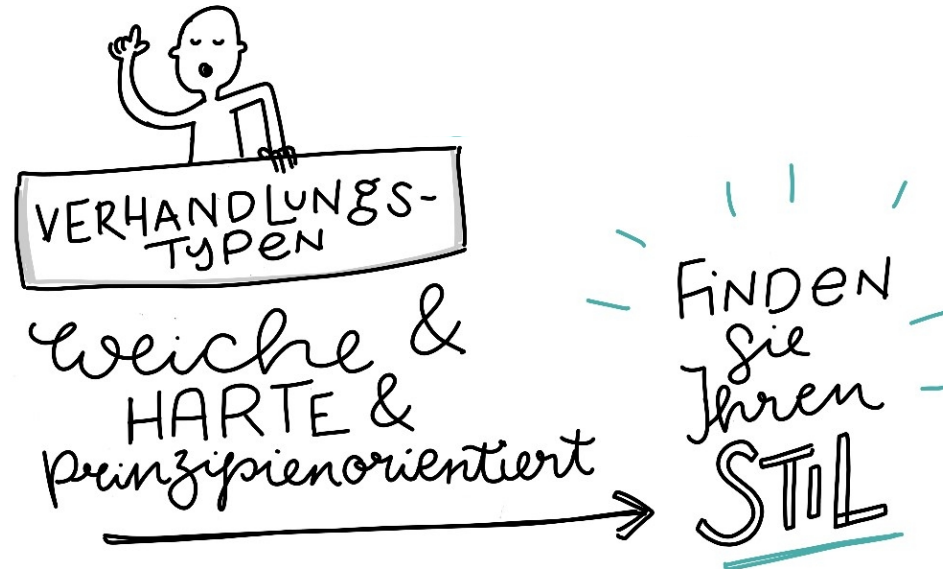 VERHANDLUNGS-
TYPEN
weiche &
HARTE &
prinzipienorientiert
FiNDEN
Sie
Ihren
STiL